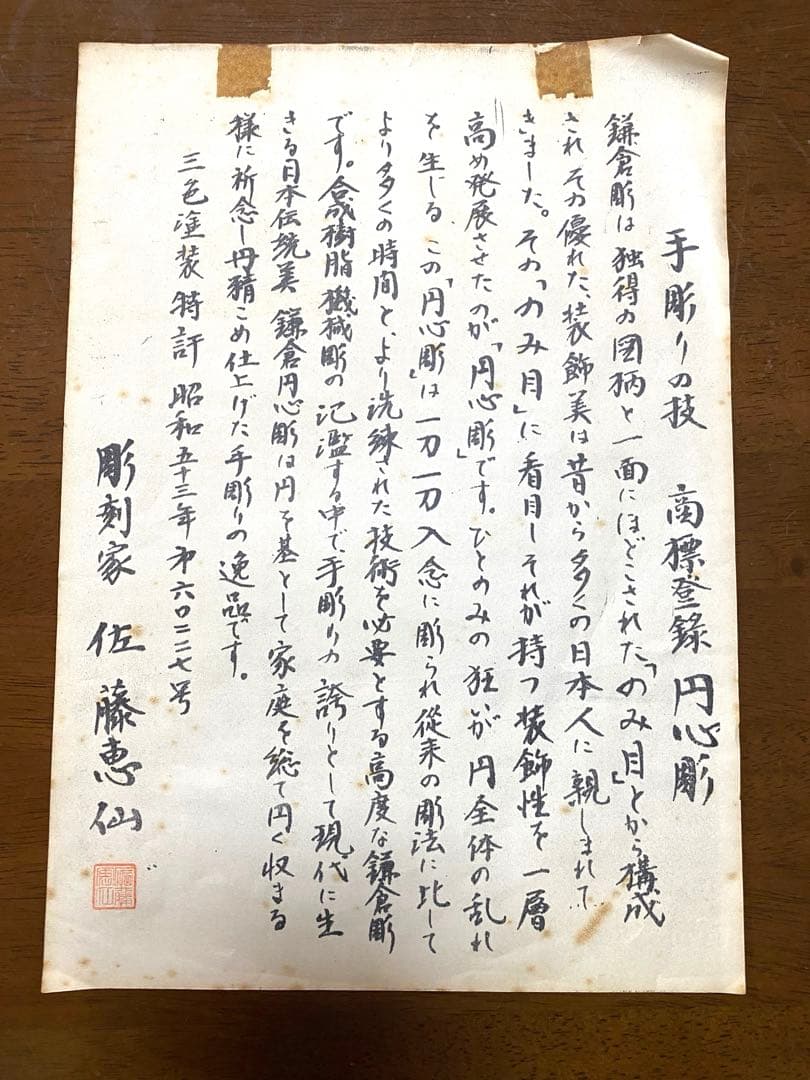 手彫りの技 商標登録 円心彫
鎌倉彫は独得の図柄と一面にほどこされた「のみ目」とから構成
されその優れた装飾美は昔から多くの日本人に親しまれて
きました。その「のみ目」に着目しそれが持つ装飾性を一層
高め発展させたのが「円心彫」です。ひとのみの狂いが円全体の乱れ
を生じる この「円心彫」は一刀一刀入念に彫られ従来の彫法に比して
より多くの時間と、より洗練された技術を必要とする高度な鎌倉彫
です。合成樹脂機械彫の氾濫する中で、手彫りの誇りとして現代に生
きる日本伝統美 鎌倉円心彫は円を基として家庭を総て円く収まる
様に祈念し丹精こめ仕上げた手彫りの逸品です。
三色塗装特許 昭和五十三年 才六〇二二七号
彫刻家 佐藤恵仙